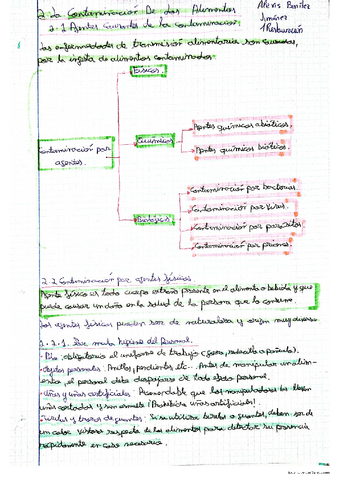 2. La Contaminación De los Alimentos
Alexis Benítez
Jiménez
1 Restauración
2.1 Agentes Causantes de la Contaminación
Las enfermedades de transmisión alimentaria son causadas,
por la ingesta de alimentos contaminados.
Físicos
Químicos
Agentes químicos abióticos
Agentes químicos bióticos
Contaminación por
agentes.
Biológicos
Contaminación por bacterias
Contaminación por virus
Contaminación por parásitos
Contaminación por priones
2.2 Contaminación por agentes físicos
Agente físico es todo cuerpo extraño presente en el alimento o bebida y que
pueda causar un daño en la salud de la persona que lo consume.
Los agentes físicos pueden ser de naturaleza y origen muy diverso
1.2.1. Por mala higiene del Personal.
obligatorio el uniforme de trabajo (gorro, redecilla o pañuelo).
Objetos personales. Anillos, pendientes etc.. Antes de manipular un alim-
ento, el personal debe despojarse de todo efecto personal.
Uñas y uñas artificiales. Recomendable que los manipuladores las lleven
uñas cortadas y sin esmalte ¡Prohibidas uñas artificiales!
y trozos de guantes. Si se utilizan o guantes, deben ser de
un color vistoso respecto de los alimentos para detectar su presencia
rápidamente en caso necesario.